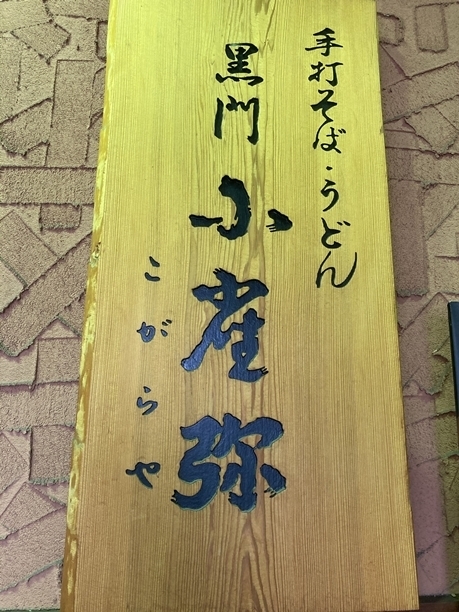 手打そば・うどん
黒門
小雀弥
こがらや